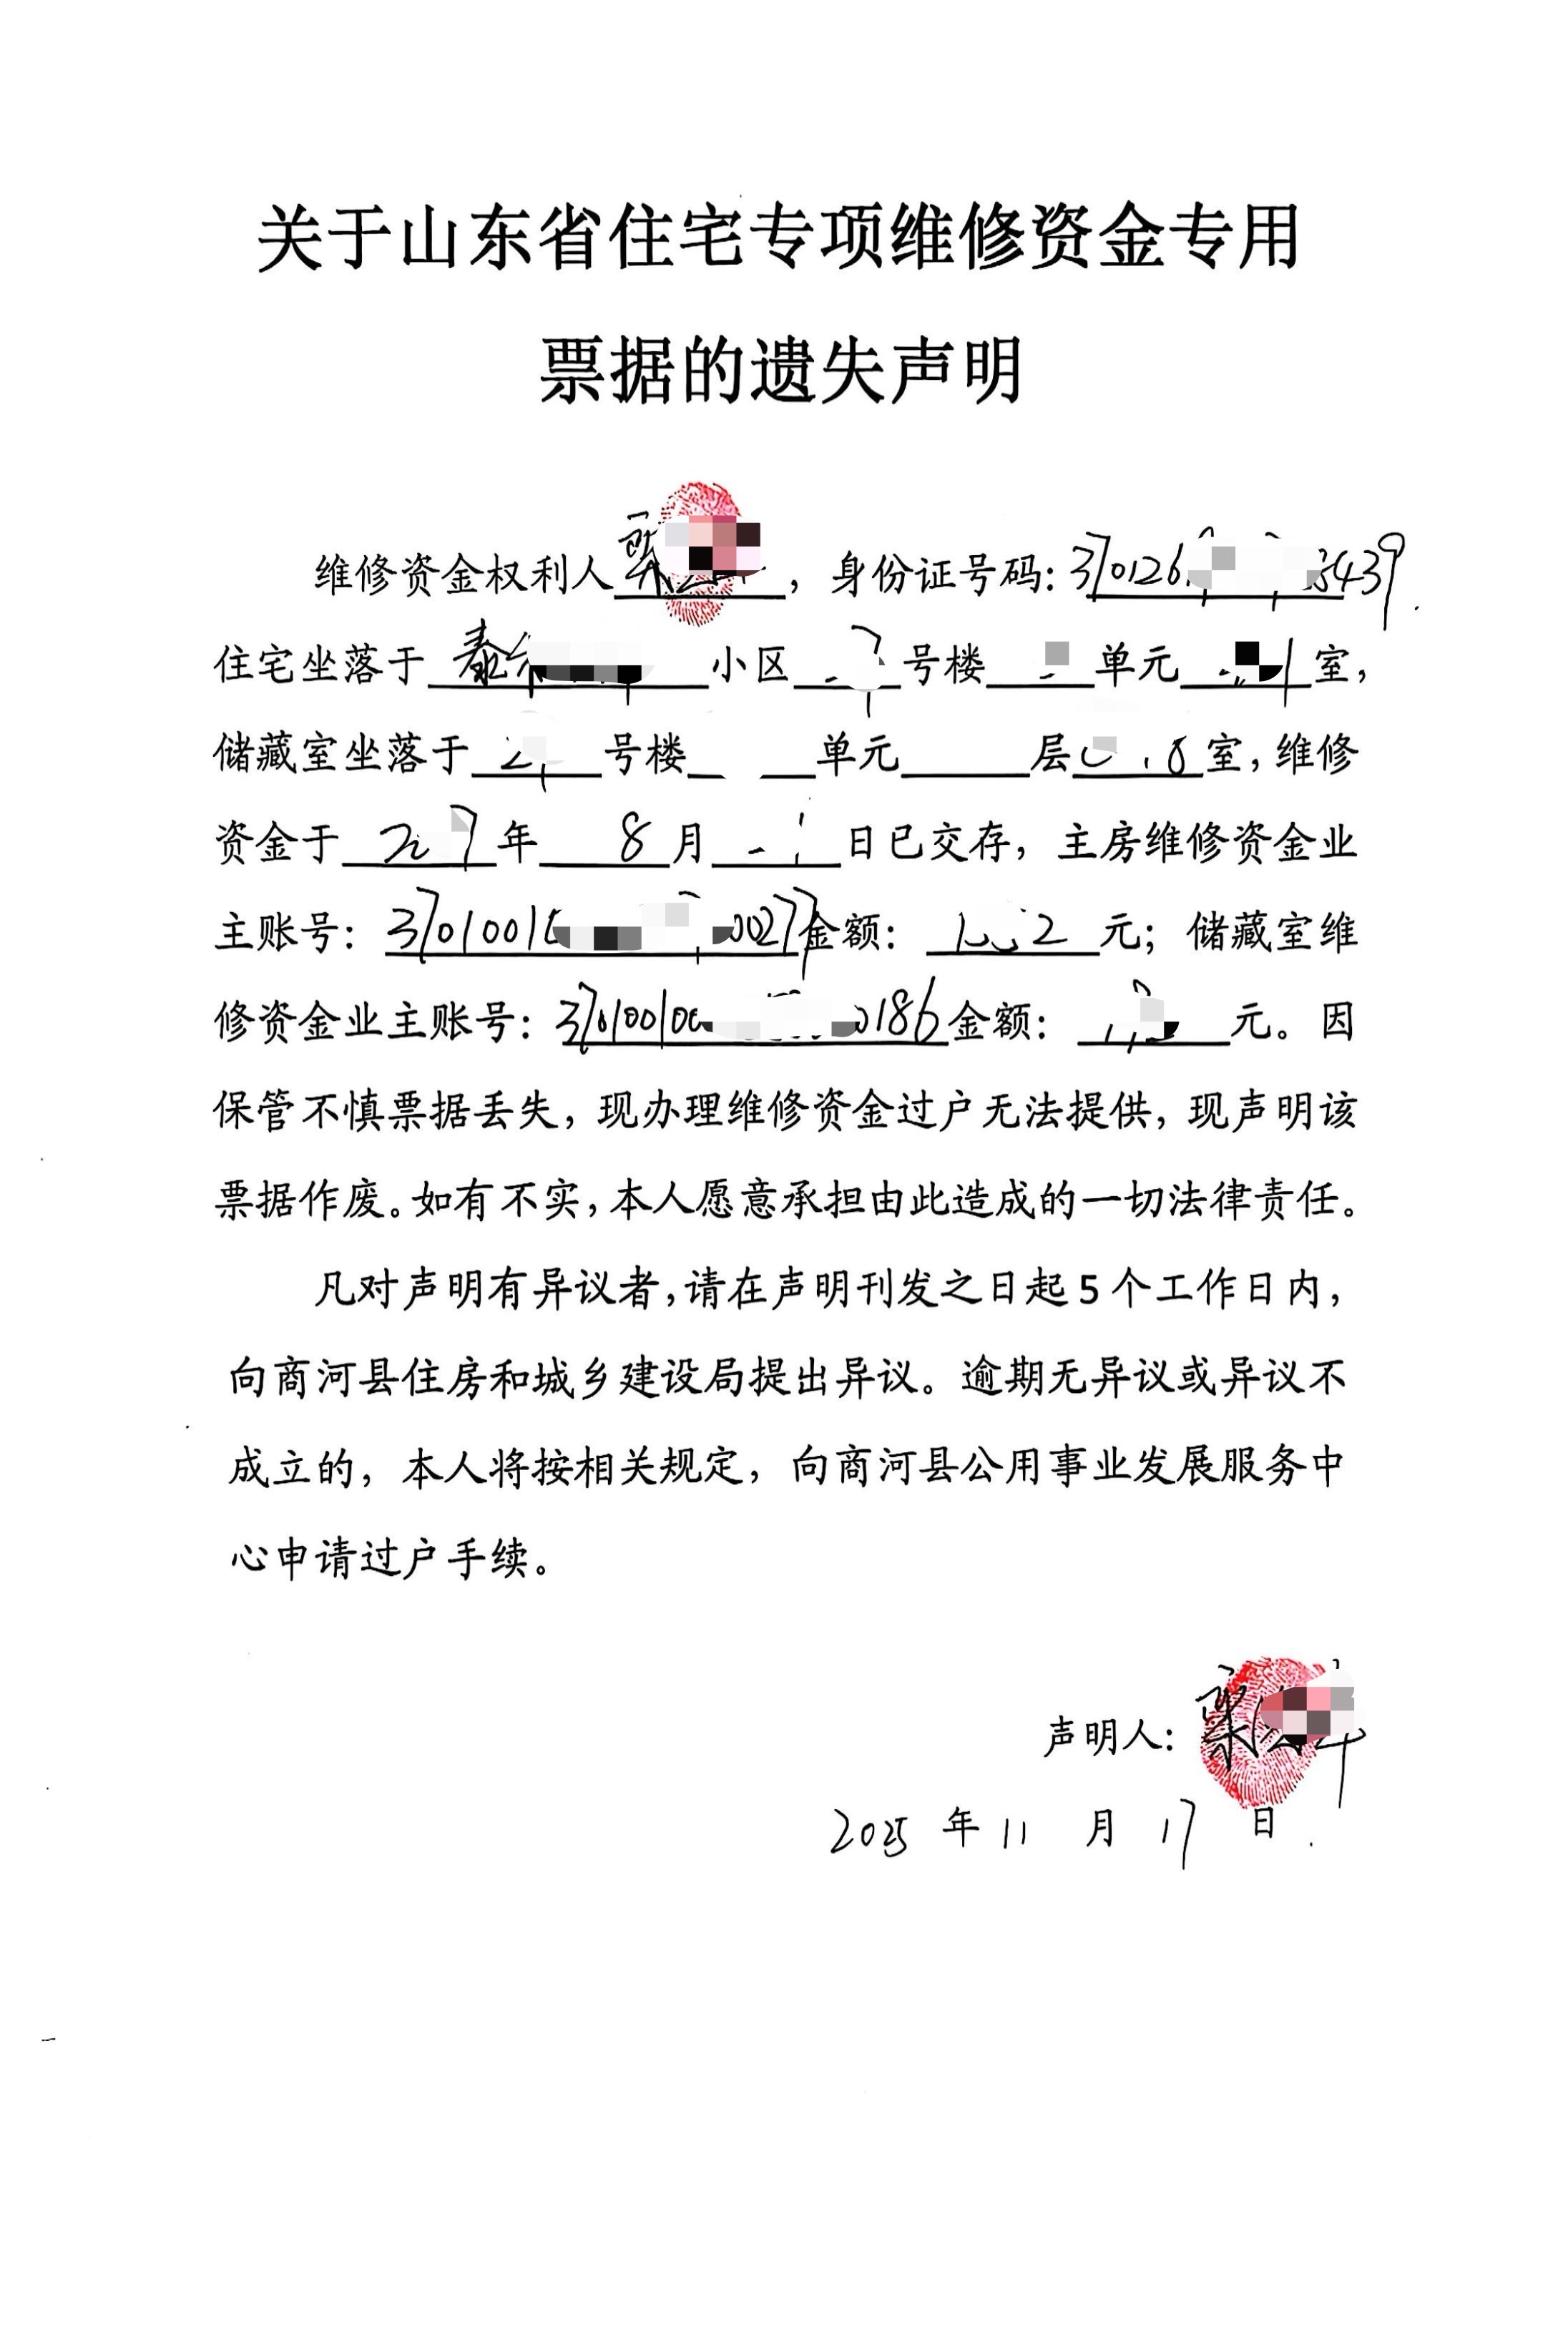 关于山东省住宅专项维修资金专用
票据的遗失声明
维修资金权利人，身份证号码：370126 3439
住宅坐落于 泰 小区 号楼 单元 室，
储藏室坐落于 号楼 单元 层 室，维修
资金于 年 8 月 日已交存，主房维修资金业
主账号：3701001 0027 金额： 2 元；储藏室维
修资金业主账号：37010010 0186 金额： 元。因
保管不慎票据丢失，现办理维修资金过户无法提供，现声明该
票据作废。如有不实，本人愿意承担由此造成的一切法律责任。
凡对声明有异议者，请在声明刊发之日起5个工作日内，
向商河县住房和城乡建设局提出异议。逾期无异议或异议不
成立的，本人将按相关规定，向商河县公用事业发展服务中
心申请过户手续。
声明人：梁
2025 年 11 月 17 日